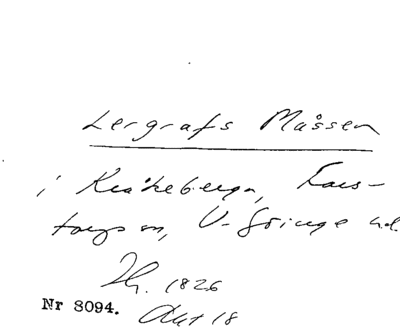 Lergrafs Måssen
i Kråkeberga, Lars-
torps sn, V. Göinge hd.
Lh. 1826
Nr 3094. Akt 18